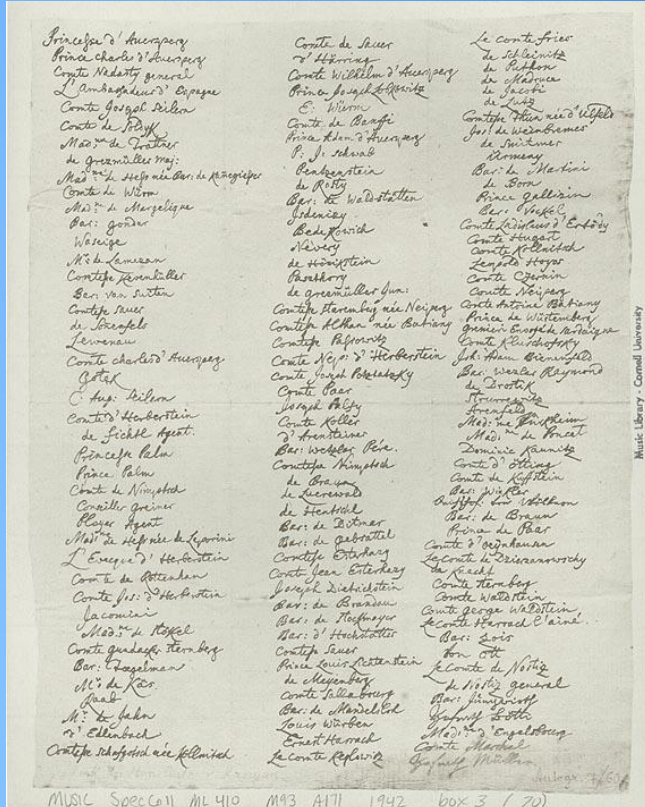 Princesse d'Auersperg
Prince charles d'Auersperg
Comte Nadasty general
L'Ambassadeur d'Espagne
Comte Joseph Seilern
Comte de Soldyk
Mad:me de Trattner
de grezmüller maj:
Mad:me de Hess née Bar: de Kanegiesser
Comte de Würm
Mad:me de Margelique
Bar: gondar
Waseige
M:r de Lamezan
Comtesse Kevenhüller
Bar: van Suiten
Comtesse Sauer
de Sonenfels
Lewenau
Comte charles d'Auersperg
Gotek
C: Aug: Seilern
Comte d'Herberstein
de Fichtl Agent.
Princesse Palm
Prince Palm
Comte de Nimptsch
Conseiller greiner
Ployer Agent
Mad:me de Hess née de Leporini
L'Evecque d'Herberstein
Comte de Rottenhan
Comte Jos: d'Herberstein
Jacomini
Mad:me de Stökel
Comte gundacker Sternberg
Bar:
M:r de Käs.
Raab
M:r de Jahn
d'Edlenbach
Comtesse Schafgotsch née Kollnitsch
Comte de Sauer
d'Häring
Comte Wilhelm d'Auersperg
Prince Joseph Lobkowitz
E: Würm
Comte de Banffi
Prince Adam d'Auersperg
P: J: Schwab
Penzenstein
de Rosty
Bar: de Waldstätten
Isdenizy
Bedekovich
Nevery
de Hönikstein
Pasthory
de greamüller Jun:
Comtesse Staremberg née Neiperg
Comtesse Althan née Batiany
Comtesse Passowitz
Comte Nep: d'Herberstein
Comte Joseph Potztatzky
Comte Paar
Joseph Palfy
Comte Koller
d'Arensteiner
Bar: Wetzlar Pére.
Comtesse Nimptsch
de Braun
de Luerewald
de Hentschl
Bar: de Ditmar
Bar: de Gebsattel
Comtesse Esterhazy
Comte Jean Esterhazy
Joseph Dietrichstein
Bar: de Brandau
Bar: de Hochmayer
Bar: d'Hochstätter
Comtesse Sauer
Prince Louis Lichtenstein
de Meyenberg
Comte Sallabourg
Bar: de Mandelsloh
Louis Würben
Ernest Harrach
Le Comte Keglowitz
Le comte fries
de Schleinitz
de Puthon
de Madruce
de Jacobi
de Lutz
Comtesse Thun née d'Ulfeld
Jos: de Weinbrenner
de Suitmer
Ürmeny
Bar: de Martini
de Born
Prince gallizin
Bar: Vockel
Comte Ladislaus d'Erdödy
Comte Hugart
Comte Kollnitsch
Leopold Hoyos
Comte Czernin
Comte Neiperg
Comte Antoine Batiany
Prince de Würtemberg
grenieri Envoyé de Sardaigne
Comte Kluschofsky
Joh: Adam Bienenfeld
Bar: Wezlar Raymond
de Drostik
Arenfeld
Mad:me Burkheim
Mad:me de Poncet
Dominic Kaunitz
Comte d'Otting
Comte de Kuffstein
Bar: Winkler
Bar: de Braun
Prince de Paar
Comte d'oeynhausen
Le comte de Dzierzanowschy
de Knecht
Comte Sternberg
Comte Waldstein
Comte george Waldstein
Le comte Harrach l'ainé.
Bar: Zois
von Ott
Le comte de Nostiz
de Nostiz general
Bar: Jüngwirth
Mad:me d'Engelsbourg
Comte Marchal
Müller
Music Library - Cornell University
MUSIC SpecColl ML 410 M93 A171 1942 box 3 (20)